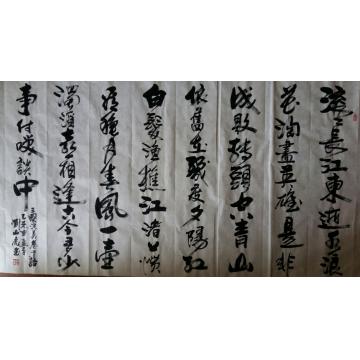 滚滚長江東逝水浪
花淘盡英雄是非
成敗轉頭空青山
依舊在幾度夕陽紅
白髮漁樵江渚上慣
看秋月春風一壺
濁酒喜相逢古今多少
事付笑談中
三國演義卷一語
乙未
劉山